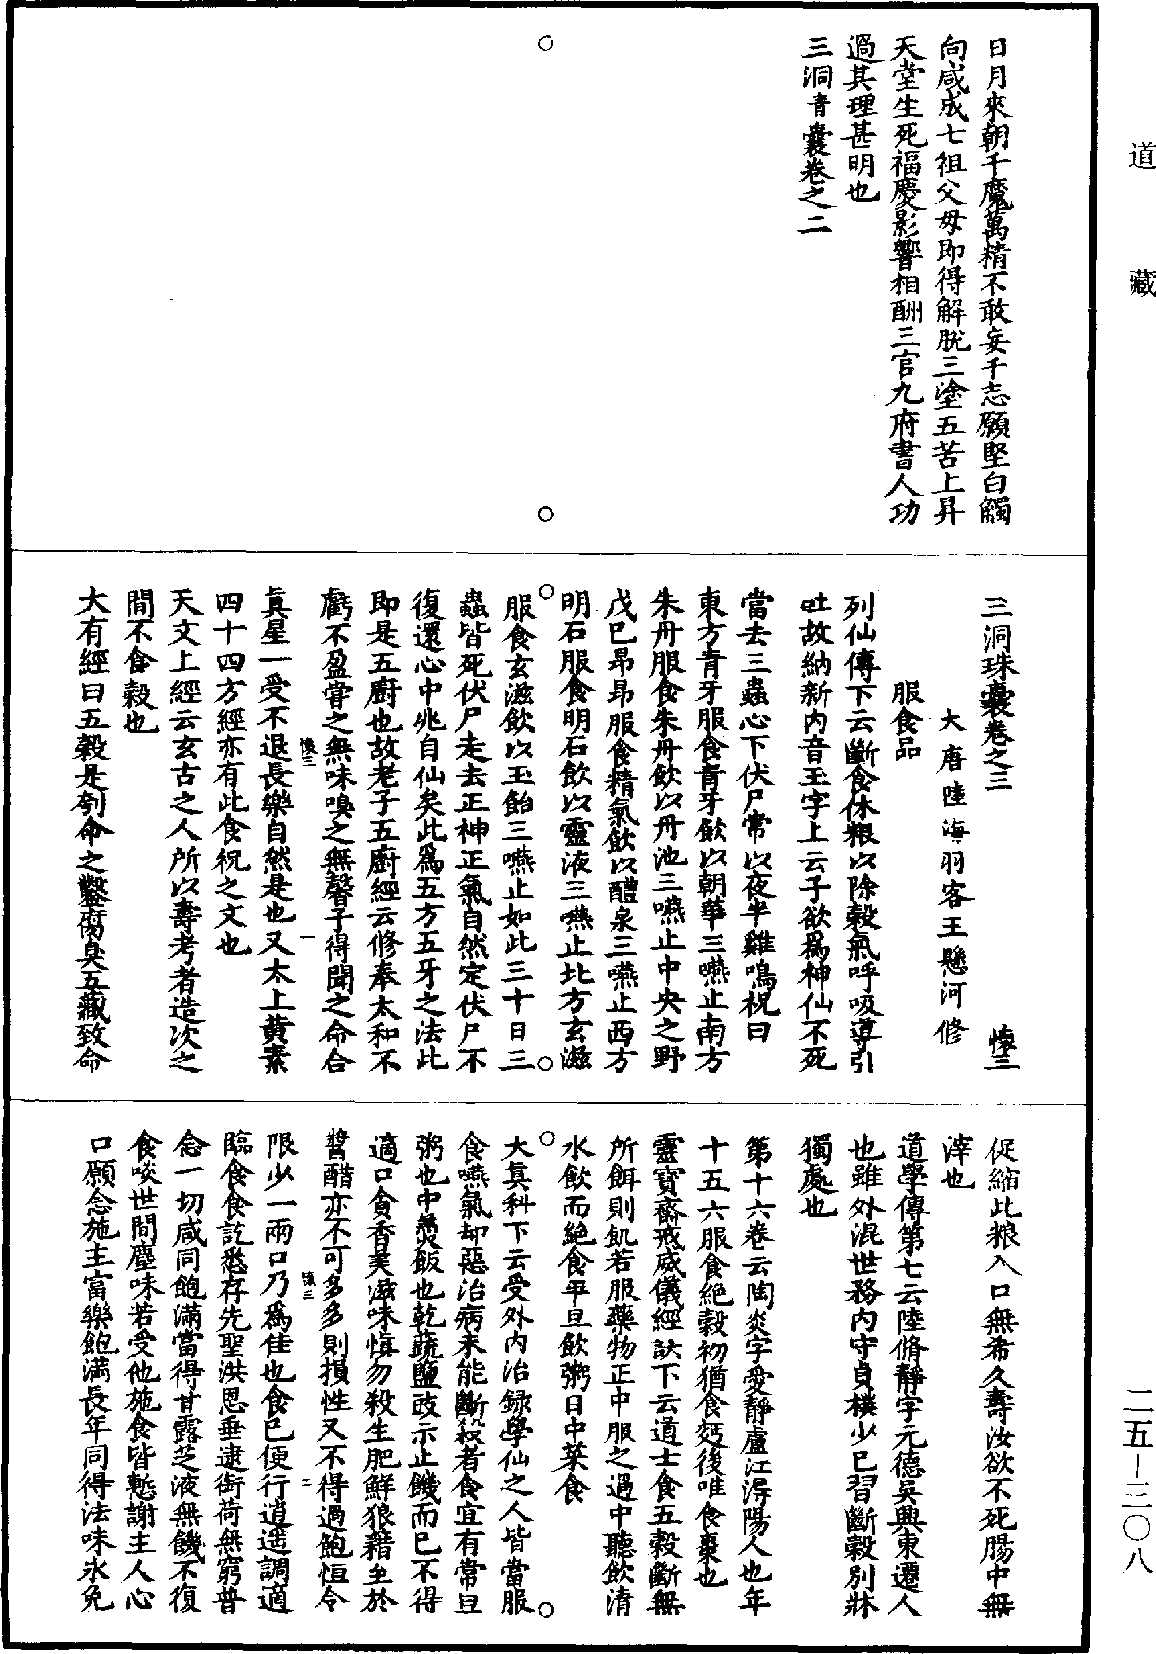 道藏
二五—三〇八
日月來朝千魔萬精不敢妄干志願堅白觸
向咸成七祖父母即得解脫三塗五苦上昇
天堂生死福慶影響相酬三官九府書人功
過其理甚明也
三洞青囊卷之二
三洞珠囊卷之三 懷三
大唐陸海羽客王懸河修
服食品
列仙傳下云斷食休粮以除穀氣呼吸導引
吐故納新內音玉字上云子欲為神仙不死
當去三蟲心下伏尸常以夜半雞鳴祝曰
東方青牙服食青牙飲以朝華三嚥止南方
朱丹服食朱丹飲以丹池三嚥止中央之野
戊己昂昂服食精氣飲以醴泉三嚥止西方
明石服食明石飲以靈液三嚥止北方玄滋
服食玄滋飲以玉飴三嚥止如此三十日三
蟲皆死伏尸走去正神正氣自然定伏尸不
復還心中兆自仙矣此為五方五牙之法此
即是五廚也故老子五廚經云修奉太和不
虧不盈嘗之無味嗅之無馨子得聞之命合
懷三 一
真星一受不退長樂自然是也又太上黃素
四十四方經亦有此食祝之文也
天文上經云玄古之人所以壽考者造次之
間不食穀也
大有經曰五穀是刳命之鑿腐臭五藏致命
促縮此粮入口無希久壽汝欲不死腸中無
滓也
道學傳第七云陸脩靜字元德吳興東遷人
也雖外混世務內守貞樸少已習斷穀別牀
獨處也
第十六卷云陶炎字愛靜廬江潯陽人也年
十五六服食絶穀初猶食麫後唯食棗也
靈寶齋戒威儀經訣下云道士食五穀斷無
所餌則飢若服藥物正中服之過中聽飲清
水飲而絶食平旦飲粥日中菜食
大真科下云受外內治籙學仙之人皆當服
食嚥氣却惡治病未能斷穀者食宜有常旦
粥也中㷡飯也乾蔬鹽豉示止饑而已不得
適口貪香美滋味慎勿殺生肥鮮狼藉至於
醬醋亦不可多多則損性又不得過飽恒令
懷三 二
限少一兩口乃為佳也食已便行逍遥調適
臨食食訖悉存先聖洪恩垂逮銜荷無窮普
念一切咸同飽滿當得甘露芝液無饑不復
食啖世間塵味若受他施食皆慙謝主人心
口願念施主富樂飽滿長年同得法味永免